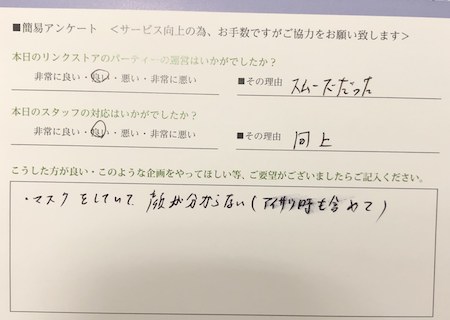 ■簡易アンケート <サービス向上の為、お手数ですがご協力をお願い致します>
本日のリンクストアのパーティーの運営はいかがでしたか？
非常に良い・良い・悪い・非常に悪い ■その理由 スムーズだった
本日のスタッフの対応はいかがでしたか？
非常に良い・良い・悪い・非常に悪い ■その理由 同上
こうした方が良い・このような企画をやってほしい等、ご要望がございましたらご記入ください。
・マスクをしていて顔が分からない(アイサツ時も含めて)